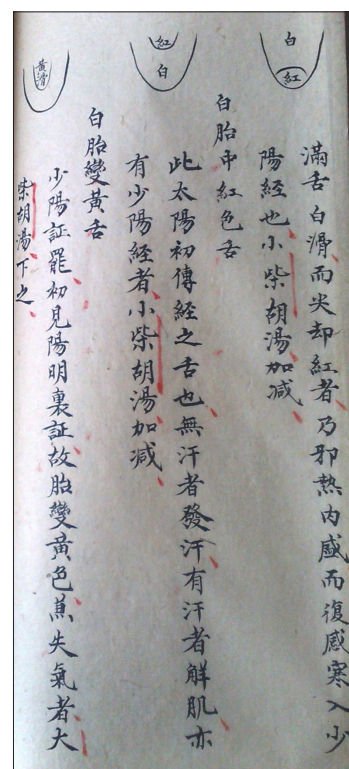 白
紅
滿舌白滑而尖却紅者乃邪熱内盛而復感寒入少
陽経也小柴胡湯加减
紅
白
白胎中紅色舌
此太陽初傳経之舌也無汗者發汗有汗者解肌亦
有少陽経者小柴胡湯加减
黃滑
白胎變黃舌
少陽証罷初見陽明裏証故胎變黃色蒸失氣者大
柴胡湯下之